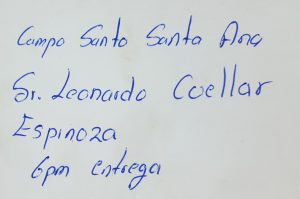 Campo Santo Santa Ana
Sr. Leonardo Coellar
Espinoza
6pm entrega